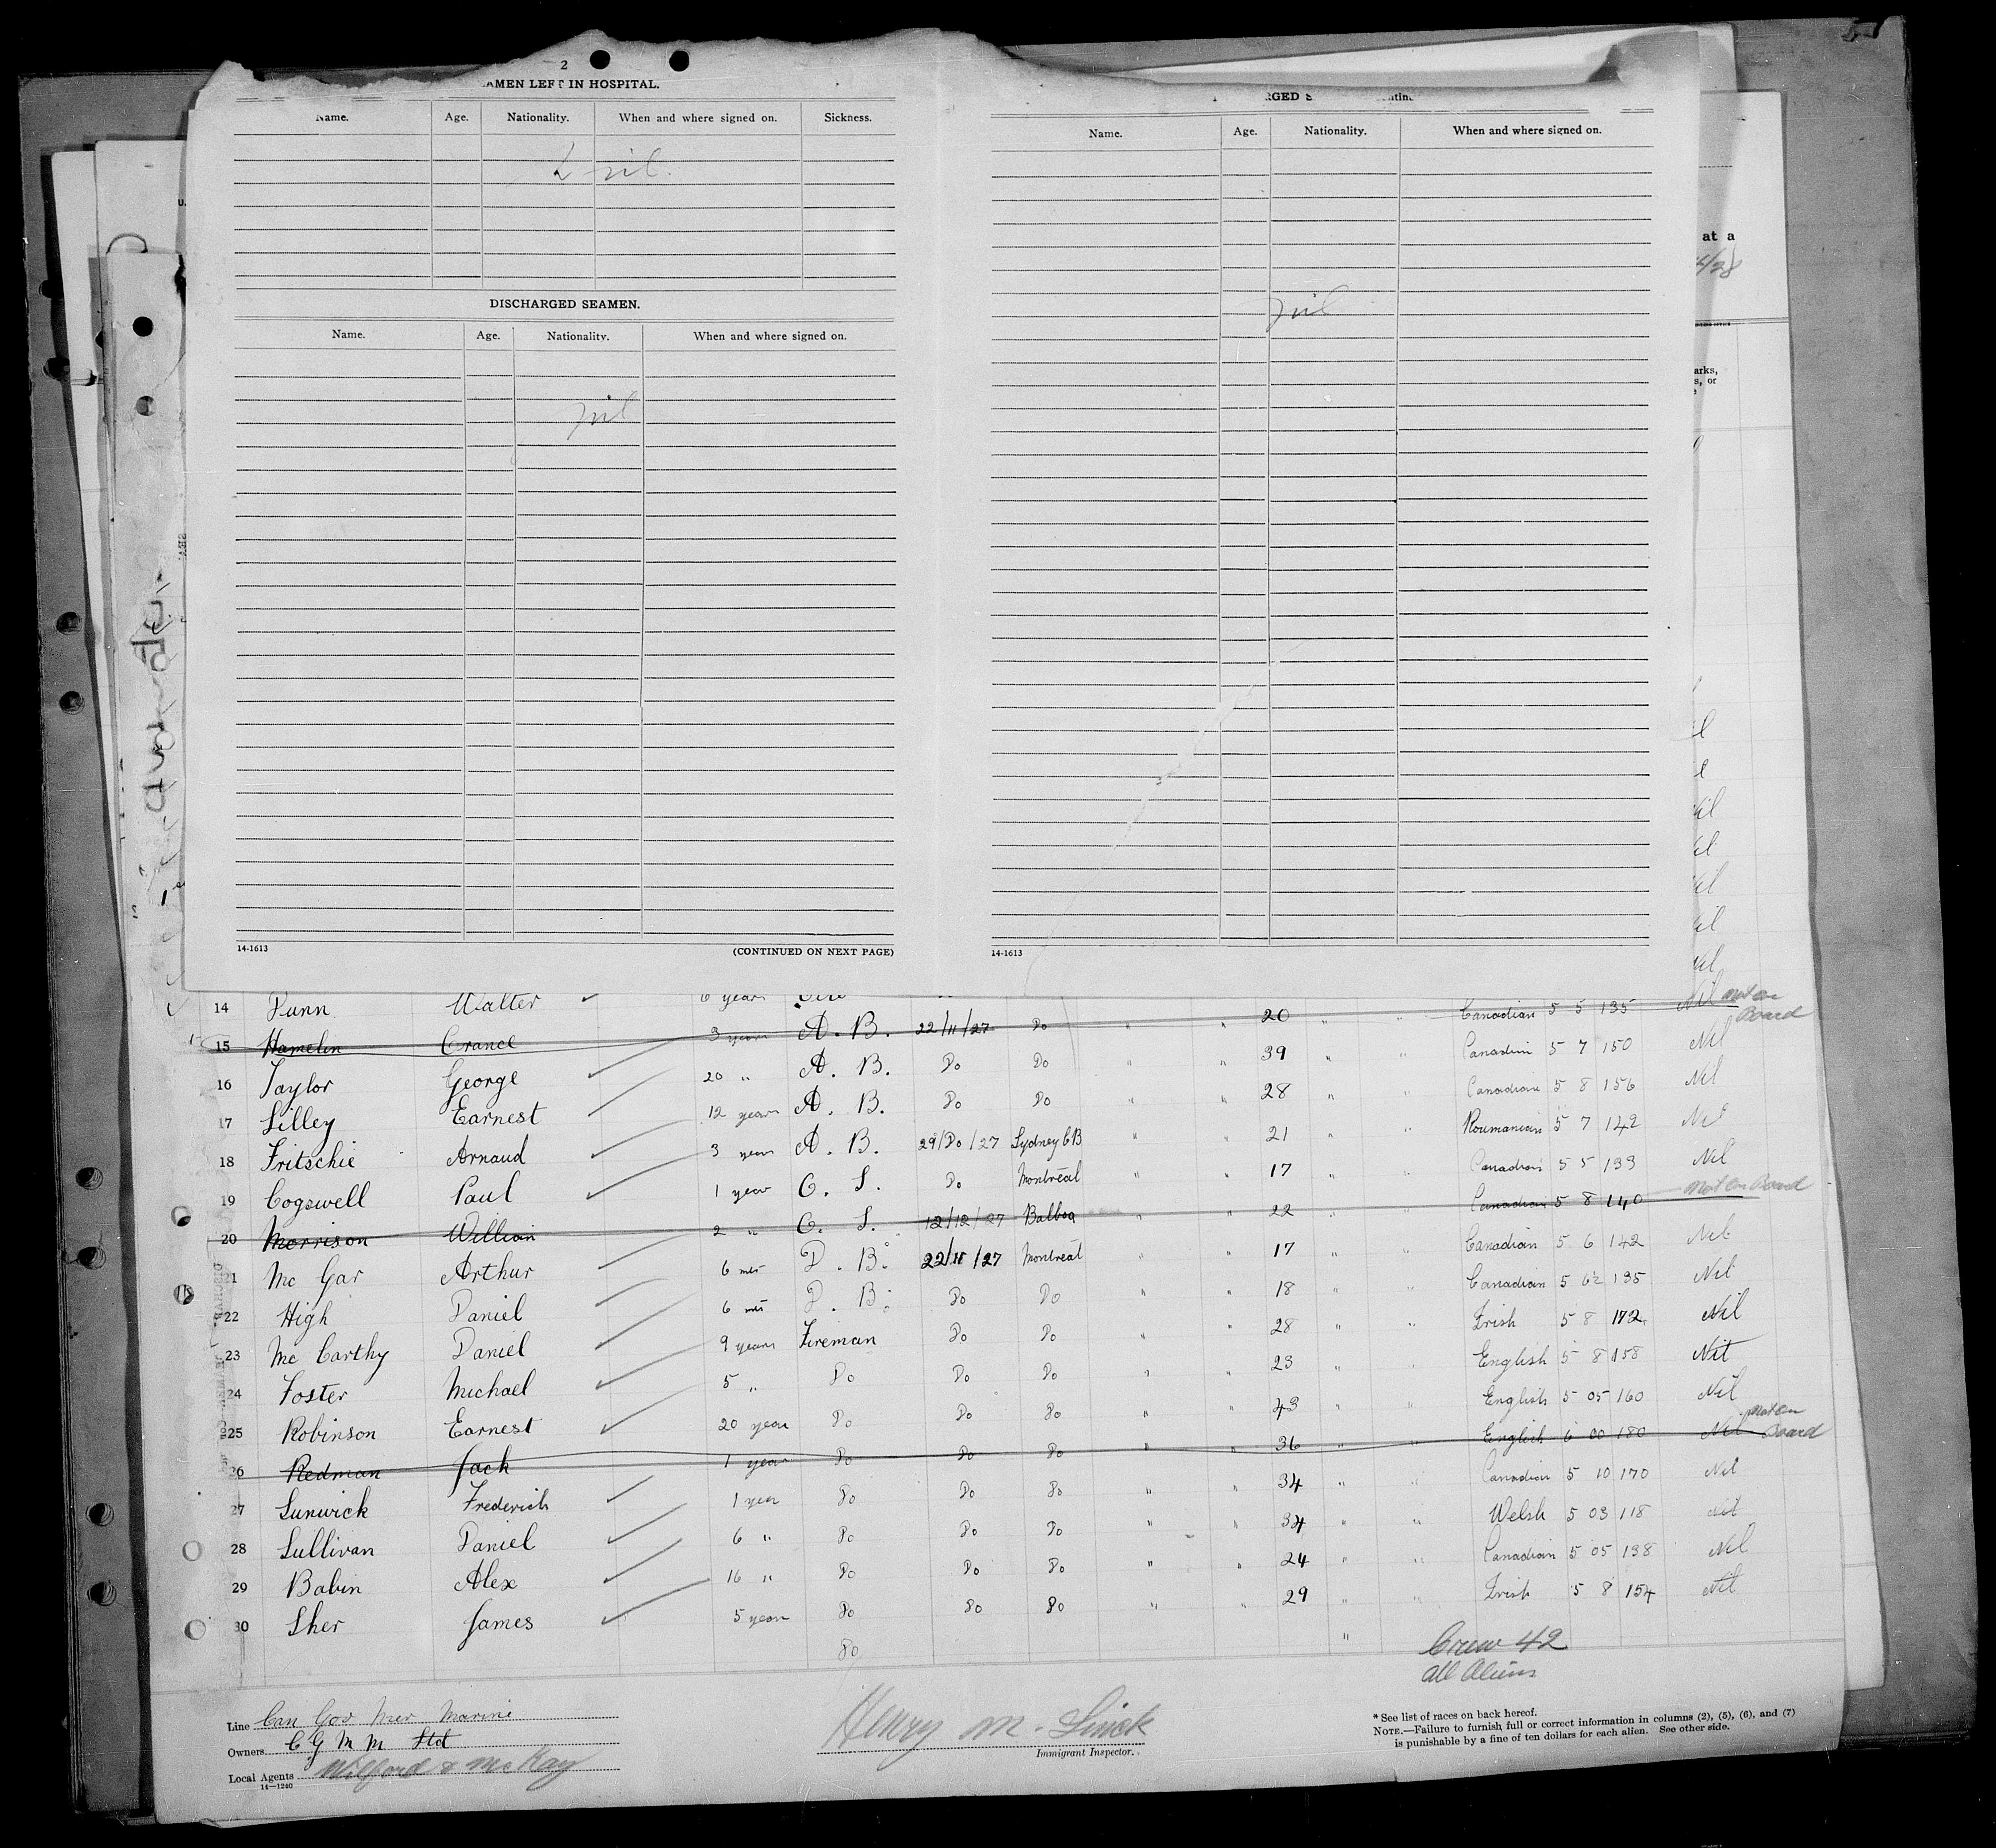 2
AMEN LEFT IN HOSPITAL.
Name. Age. Nationality. When and where signed on. Sickness.
nil.
DISCHARGED SEAMEN.
Name. Age. Nationality. When and where signed on.
nil
14-1613 (CONTINUED ON NEXT PAGE)
RGED S
Name. Age. Nationality. When and where signed on.
nil
14-1613
at a
arks,
s, or
14 Dunn Walter 6 years
15 Hamelin Orance 3 years A. B. 22/11/27 Do " " 20 " " Canadian 5 5 135 Nil Not on Board
16 Taylor George 20 " A. B. Do Do " 39 " " Canadian 5 7 150 Nil
17 Lilley Earnest 12 years A. B. Do Do " " 28 " " Canadian 5 8 156 Nil
18 Fritschie Arnaud 3 years A. B. 29/Do/27 Sydney CB " " 21 " " Roumanian 5 7 142 Nil
19 Cogswell Paul 1 year O. S. Do Montreal " " 17 " " Canadian 5 5 133 Nil
20 Morrison William 2 " O. S. 12/12/27 Balboa " " 22 " " Canadian 5 8 140 Not on Board
21 Mc Gar Arthur 6 mts D. B. 22/11/27 Montreal " " 17 " " Canadian 5 6 142 Nil
22 High Daniel 6 mts D. B. Do Do " " 18 " " Canadian 5 6½ 135 Nil
23 Mc Carthy Daniel 9 years Fireman Do Do " " 28 " " Irish 5 8 172 Nil
24 Foster Michael 5 " Do Do Do " " 23 " " English 5 8 158 Nil
25 Robinson Earnest 20 year Do Do Do " " 43 " " English 5 05 160 Nil
26 Redman Jack 1 year Do Do Do " " 36 " " English 6 00 180 Nil Not on Board
27 Lunwick Frederich 1 year Do Do Do " " 34 " " Canadian 5 10 170 Nil
28 Sullivan Daniel 6 " Do Do Do " " 34 " " Welsh 5 03 118 Nil
29 Babin Alex 16 " Do Do Do " " 24 " " Canadian 5 05 138 Nil
30 Sher James 5 year Do Do Do " " 29 " " Irish 5 8 154 Nil
Do "
Crew 42
all Aliens
Line Can Gov Mer Marine
Owners C G M M Ltd
Local Agents Wilford & McKay
14—1240
Henry M. Linck
Immigrant Inspector.
* See list of races on back hereof.
NOTE.—Failure to furnish full or correct information in columns (2), (5), (6), and (7)
is punishable by a fine of ten dollars for each alien. See other side.